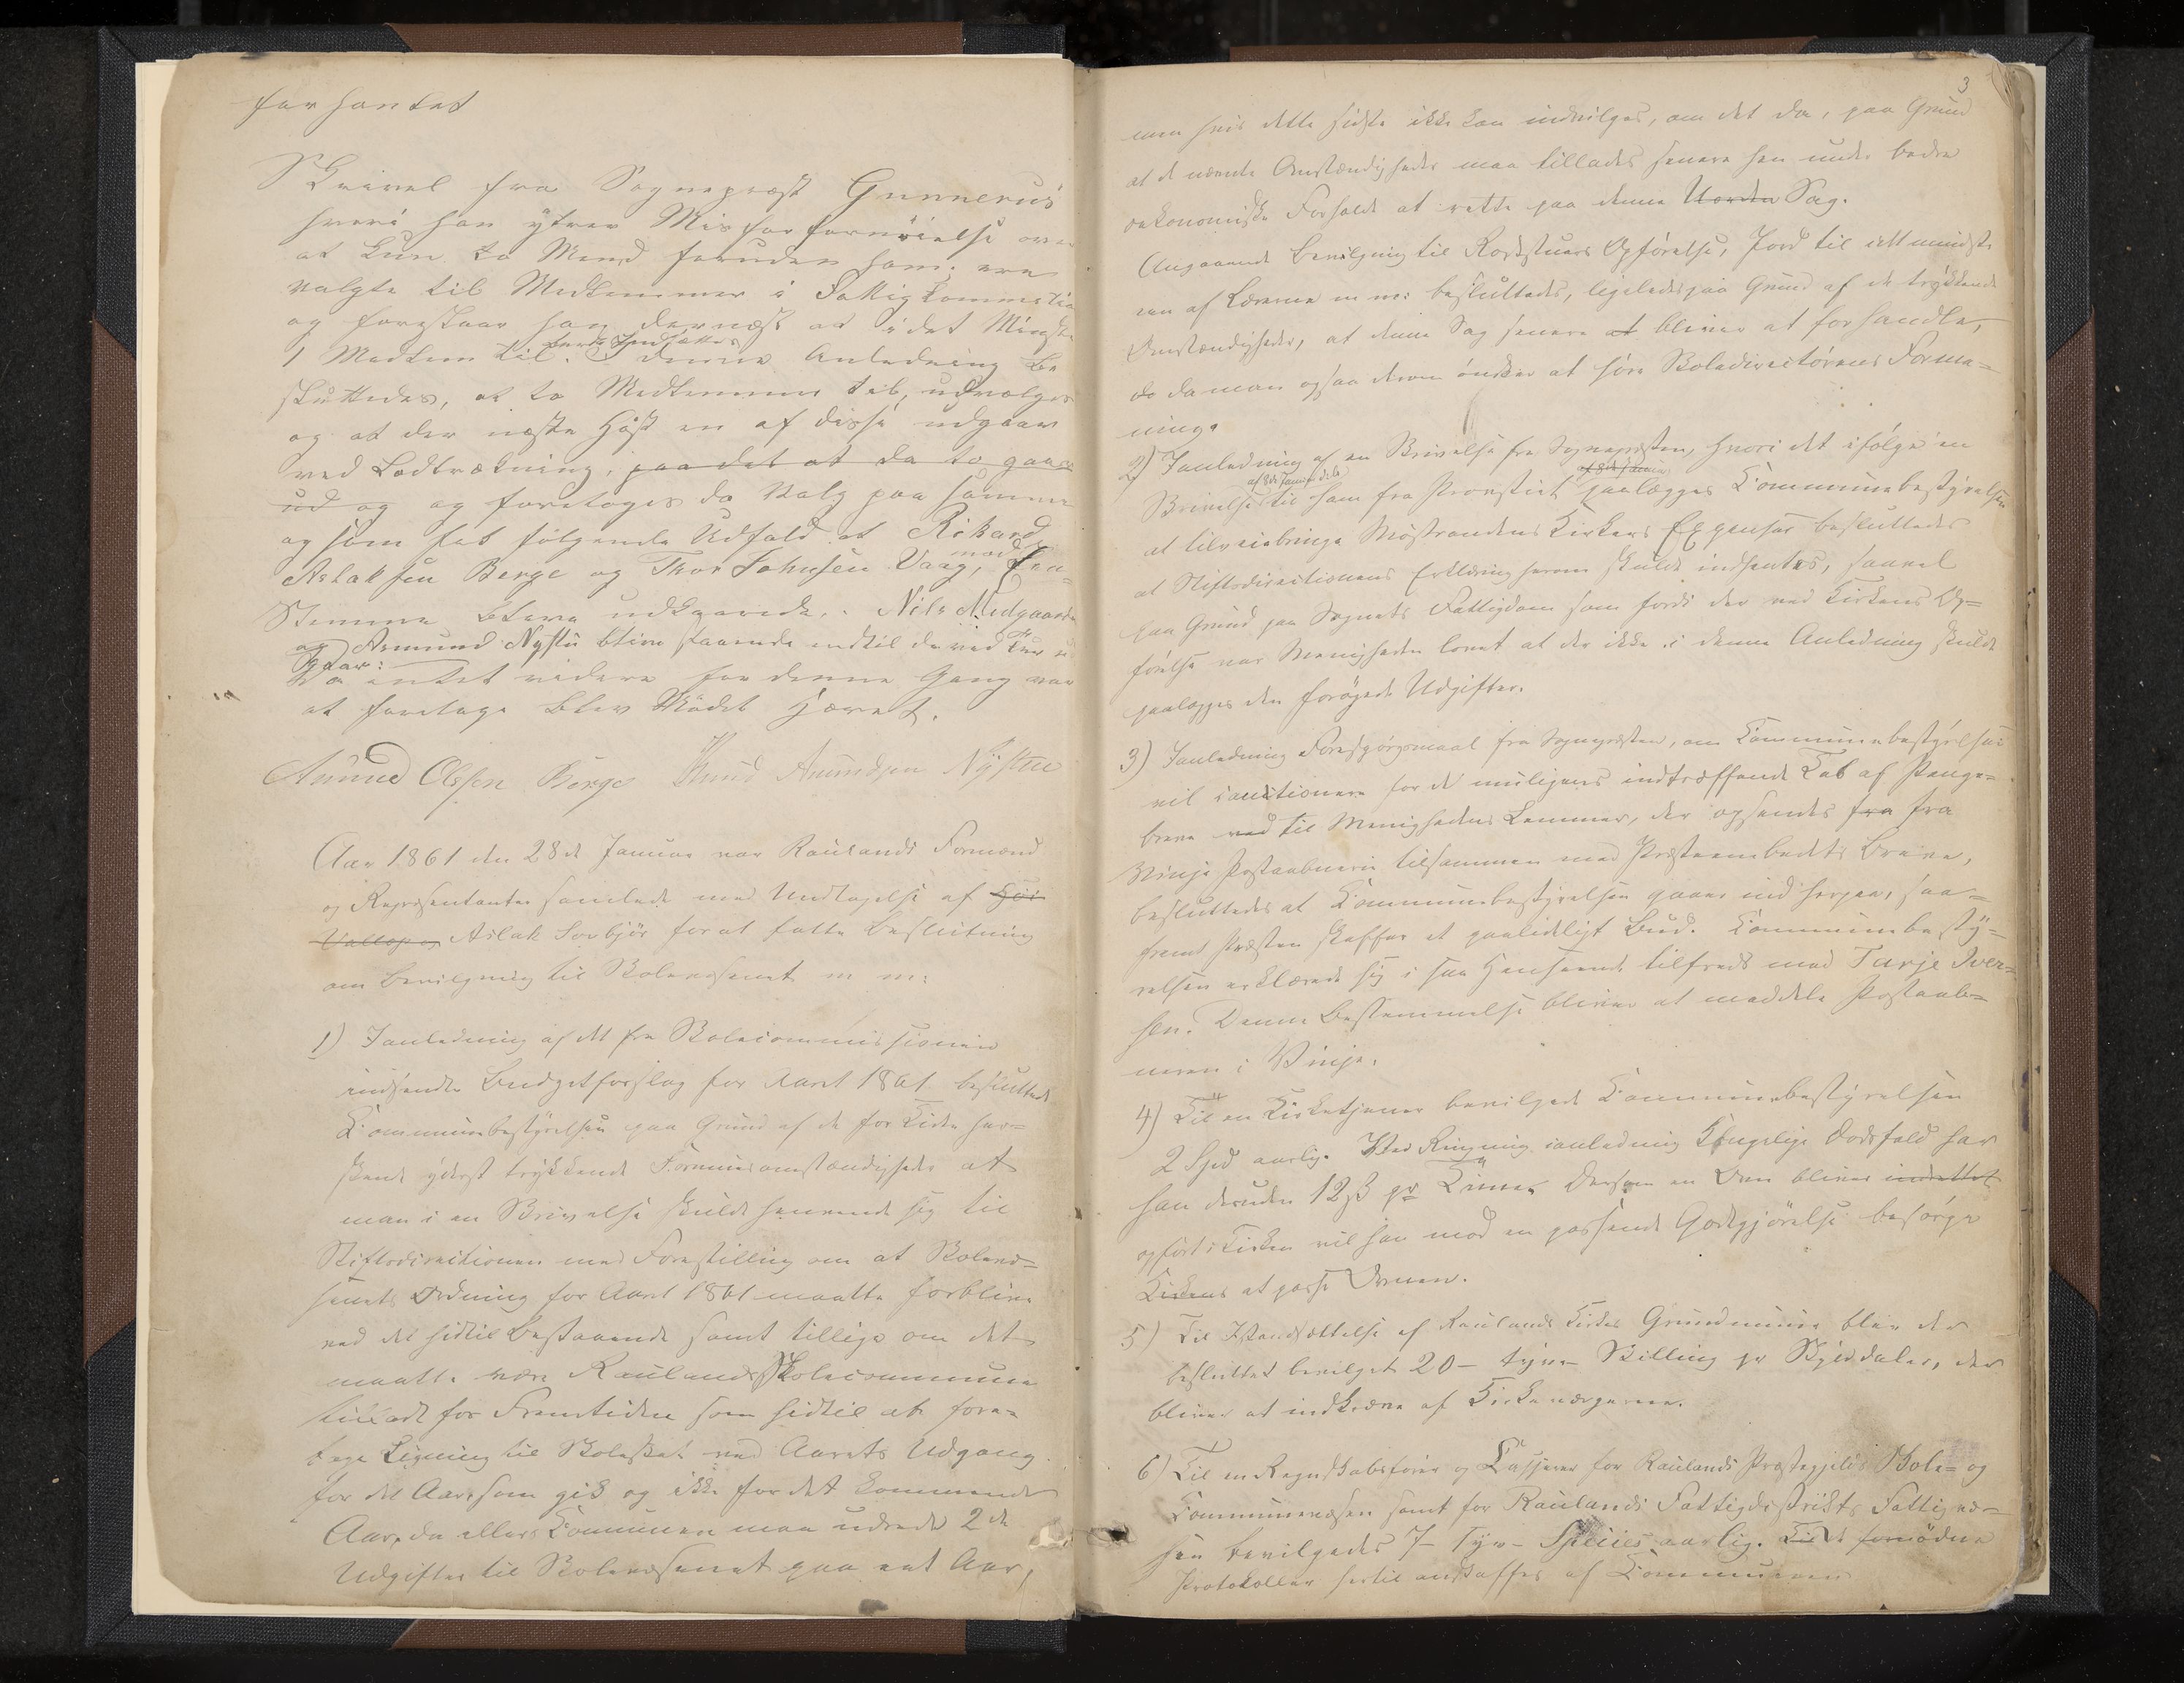 forhantet
Skrivel fra Sognepræst Gunnerus
hvori han ytrer Misforfornöielse over
at kun to Mend foruden ham ere
valgte til Medlemmer i Fattigkommetion
og foreslaar han dernæst at i det Mindste
1 Medlem til. I denne Anledning be
sluttedes, at to Medlemmer teb, udvælges
og at der næste Höst en af disse udgaar
ved Lodtrækning, paa det at da to gaar
ud og og foretoges da Valg paa samme
og som fik fölgende Udfald at Rikard
Aslaksen Berge og Thor Johnsen Vaag, med
Stemme bleve udkaarede. Nils Midgaarden
og Asmund Nystu blive staaende indtil de ved
gaar:
Da intet videre for denne Gang var
at foretage blev Mödet hævet.
Amund Olssen Berge Knud Amundsen Nÿstue
Aar 1861 den 28de Januar var Raulands Formænd
og Repræsentanter samlede med Undtagelse af
Aslak Sovbjör for at fatte Beslutning
om Bevilgning til Skolevæsenet m m:
1) Ianledning af det fra Skolecommissionen
indsendte Budgetforslag for Aaret 1861 besluttede
Communebestÿrelsen paa Grund af de for Tiden her-
skende ÿderst trÿkkende Formuesomstændigheder at
man i en Skrivelse skulde henvende sig til
Stiftsdirectionen med Forestilling om at Skolevæ-
senets Ordning for Aaret 1861 maatte forblive
ved det hidtil Bestaaende samt tillige om det
maatte være Raulands Skolecommune
tilladt for Fremtiden som hidtil at fore-
tage Ligning til Skoleskat ved Aarets Udgang
for det Aar, som gik og ikke for det kommende
Aar, da ellers Communen maa udrede 2de
Udgifter til Skolevæsenet paa eet Aar,
3
men hvis dette sidste ikke kan indvilges, om det da, paa Grund
af de nævnte Omstændigheder maa tillades senere hen under bedre
oekonomiske Forholde at rette paa denne Uorden Sag.
Angaaende Bevilgning til Rostuers Opförelse, Jord til idetmindste
een af Lærerne m m: besluttedes, ligeledes paa Grund af de trÿkkende
Omstændigheder, at denne Sag senere at bliver at forhandle,
do da man ogsaa derom önsker at höre Skoledirectörens Forme-
ning.
2) Ianledning af en Skrivelse fra Sognepræsten, hvori det ifölge en
af 8de Januar
Skrivelse til ham fra Provstiet paalægges Communebestÿrelsen
at tilveiebringe Möstrandens Kirkes Expenser besluttedes
at Stiftsdirectionens Erklæring herom skulde indhentes, saavel
paa Grund paa Sognets Fattigdom som fordi der ved Kirkens Op-
förelse var Menigheden lovet at der ikke i denne Anledning skulde
paalægges den forögede Udgifter.
3) Ianledning Forespörgsmaal fra Sognepræsten, om Communebestÿrelsen
vil cautionere for de muligens indtræffende Tab af Penge-
breve ved til Menighedens Lemmer, der opsendes fra fra
Vinje Postaabneri tilsammen med Præsteembedets Breve,
besluttedes at Communebestyrelsen gaaer ind herpaa, saa-
fremt Præsten skaffer et paalideligt Bud. Communebestÿ-
relsen erklærede sig i saa Henseende tilfreds med Tarje Iver-
sen. Denne Bestemmelse bliver at meddele Postaab-
neren i Vinje.
4) Til en Kirketjener bevilgede Communebestÿrelsen
2 Spd aarlig. Ved Ringning ianledning Kongelige Dödsfald har
han desuden 12 ß pr Time. Dersom en Ovn bliver indrettet
opfört i Kirken vil han mod en passende Godtgjörelse besörge
Kirkens at passe Ovnen.
5) Til Istandsættelse af Raulands Kirkes Grundmuur blev der
besluttet bevilget 20 - tÿve - Skilling pr Skÿlddaler, der
bliver at indkræve af Kirkeværgerne.
6) Til en Regnskabsförer og Casserer for Raulands Præstegjelds Skole- og
Communevæsen samt for Raulands Fattigdistrikts Fattigvæ-
sen bevilgedes 7 - Syv - Species aarlig. De fornödne
Protokoller hertil anskaffes af Communen